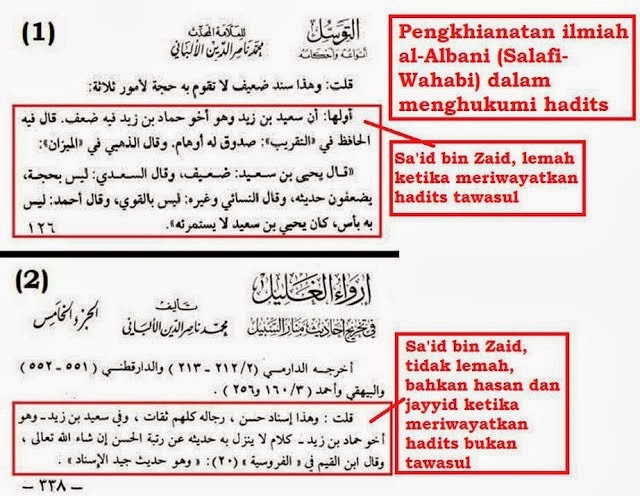 (1)
للعلامة المحدث
محمد ناصر الدين الألباني
التوسل
أنواعه وأحكامه
Pengkhianatan ilmiah
al-Albani (Salafi-
Wahabi) dalam
menghukumi hadits
قلت: وهذا سند ضعيف لا تقوم به حجة لأمور ثلاثة:
أولها: أن سعيد بن زيد وهو أخو حماد بن زيد فيه ضعف. قال فيه
الحافظ في «التقريب»: صدوق له أوهام. وقال الذهبي في «الميزان»:
«قال يحيى بن سعيد: ضعيف، وقال السعدي: ليس بحجة،
يضعفون حديثه، وقال النسائي وغيره: ليس بالقوي، وقال أحمد: ليس
به بأس، كان يحيى بن سعيد لا يستمرئه».
١٢٦
Sa'id bin Zaid, lemah
ketika meriwayatkan
hadits tawasul
(2)
إرواء الغليل
في تخريج أحاديث منار السبيل
تأليف
محمد ناصر الدين الألباني
الجزء الخامس
أخرجه الدارمي (٢/٢١٢ - ٢١٣) والدارقطني (٥٥١ - ٥٥٢)
والبيهقي وأحمد (٣/١٦٠ و ٢٥٦) .
قلت : وهذا إسناد حسن ، رجاله كلهم ثقات ، وفي سعيد بن زيد ـ وهو
أخو حماد بن زيد ـ كلام لا ينزل به حديثه عن رتبة الحسن إن شاء الله تعالى ،
وقال ابن القيم في « الفروسية » (٢٠): « وهو حديث جيد الإسناد » .
ـ ٣٣٨ ـ
Sa'id bin Zaid,
tidak lemah,
bahkan hasan dan
jayyid ketika
meriwayatkan
hadits bukan
tawasul